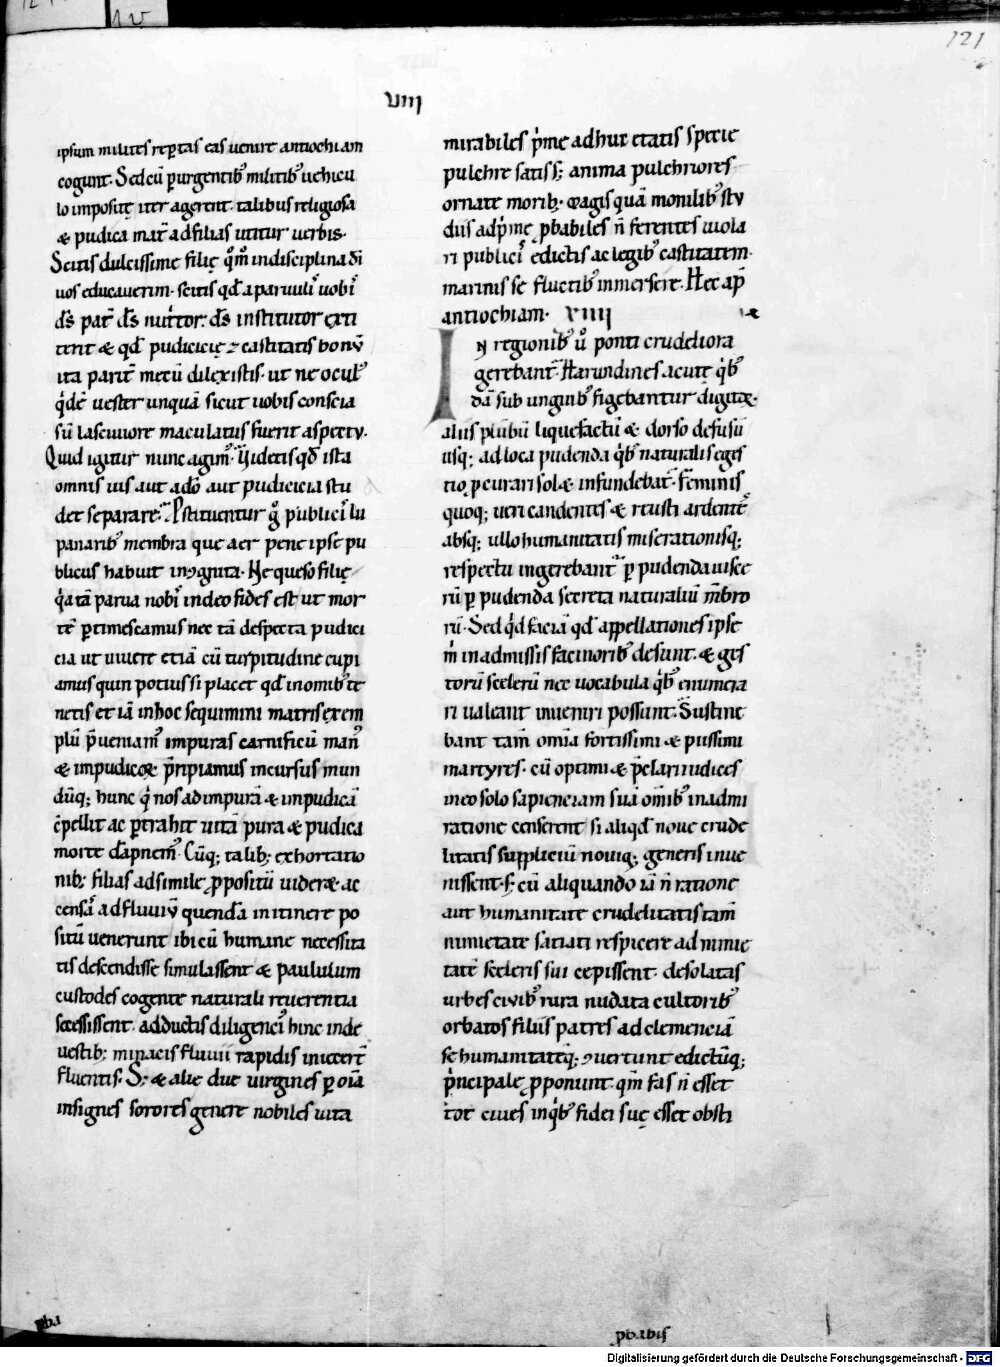 121
VIII
ipsum milites rep̲tas eas uenire antiochiam
cogunt. Sed cū p̲urgentibꝰ militibꝰ uehicu
lo impositę iter agerent. talibus religiosa
& pudica mat̄ ad filias utitur uerbis.
Scitis dulcissime filię qͦm̄ in disciplina dī
uos educauerim. scitis qd̄ a paruulis uobis
ds̄ pat̄ ds̄ nutritor. ds̄ institutor exti
terit & qd̄ pudicicię ⁊ castitatis bonū
ita parit̄ mecū dilexistis. ut ne oculꝰ
qͥdē uester unquā sicut uobis conscia
sū lasciuiore maculatus fuerit aspectu.
Quid igitur nunc agimꝰ. Videtis qd̄ ista
omnis uis aut a dō aut pudicicia stu
det separare. Pstituentur gͦ publicis lu
panaribꝰ membra que aer pene ipse pu
blicus habuit incognita. Ne queso filię
qͥa tā parua nobis in deo fides est ut mor
tē p̲timescamus nec tā despecta pudici
cia ut uiuere etiā cū turpitudine cupi
amus quin potius si placet qd̄ in omibꝰ te
netis et iā in hoc sequimini matris exem
plū p̄ueniamꝰ impuras carnificū manꝰ
& impudicoꝝ p̄ripiamus incursus mun
dūq; hunc qͥ nos ad impurā & impudicā
cōpellit ac p̲trahit uitā pura & pudica
morte dāpnemꝰ. Cūq; talib; exhortatio
nib; filias ad simile ꝓpositū uider& ac
censas ad fluuiū quendā in itinere po
sitū uenerunt ibi cū humane necessita
tis descendisse simulassent & paululum
custodes cogente naturali reuerentia
secessissent. adductis diligencius hinc inde
uestib; minacis fluuii rapidis iniecert̄
fluentis. S; & alie due uirgines p̲ oīa
insignes sorores genere nobiles uita
mirabiles p̄me adhuc etatis specie
pulchre satis s; anima pulchriores
ornate morib; magis quā monilibꝰ stu
diis adpͥme ꝓbabiles n̄ ferentes uiola
ri publicis edictis ac legibꝰ castitatem.
marinis se fluctibꝰ inmersere. Hec ap̄
antiochiam. XIIII
IN regionibꝰ uͦ ponti crudeliora
gerebant̄. Harundines acutę qͥbꝰ
dā sub unginbꝰ figebantur digitoꝝ.
aliis plūbū liquefactū & dorso defusū
usq; ad loca pudenda qͥbꝰ naturalis eges
tio ꝓcurari sol& infundebat̄. feminis
quoq; uerū candentes & reusti ardenter
absq; ullo humanitatis miserationisq;
respectu ingerebant̄ p̲ pudenda uisce
rū p̲ pudenda secreta naturaliū mēbro
rū. Sed qͥd faciā qd̄ appellationes ipse
m̄ in admissis facinoribꝰ desunt. & ges
torū scelerū nec uocabula qͥbꝰ enumera
ri ualeant inueniri possunt. Sustine
bant tam̄ omīa fortissimi & piissimi
martyres. cū optimi & p̄clari iudices
in eo solo sapienciam suā omībꝰ in admi
ratione censerent si aliqd̄ noue crude
litatis suppliciū nouiq; generis inue
nissent. s; cū aliquando iā n̄ ratione
aut humanitate crudelitatis tam̄
nimietate satiati respicere ad nimie
tatē sceleris sui cepissent. desolatas
urbes ciuibꝰ rura nudata cultoribꝰ
orbatos filiis patres ad clemenciā
se humanitatēq; ꝯuertunt edictūq;
pͥncipale ꝓponunt. qm̄ fas n̄ esset
tot ciues in qͥbꝰ fidei suę esset obsti
ꝓbabis
Digitalisierung gefördert durch die Deutsche Forschungsgemeinschaft - DFG